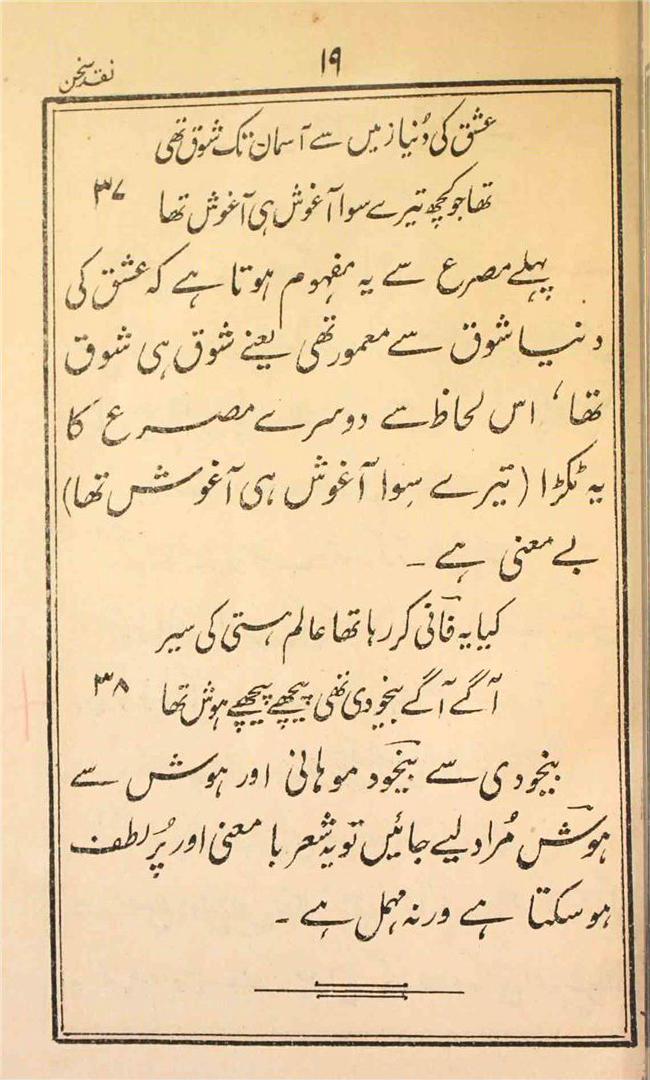 نقد سخن
۱۹
عشق کی دُنیا زمیں سے آسماں تک شوق تھی
تھا جو کچھ تیرے سوا آغوش ہی آغوش تھا ۳۷
پہلے مصرع سے یہ مفہوم ہوتا ہے کہ عشق کی
دنیا شوق سے معمور تھی یعنے شوق ہی شوق
تھا، اس لحاظ سے دوسرے مصرع کا
یہ ٹکڑا (تیرے سِوا آغوش ہی آغوش تھا)
بے معنی ہے ۔
کیا یہ فانی کر رہا تھا عالم ہستی کی سیر
آگے آگے بیخودی تھی پیچھے پیچھے ہوش تھا ۳۸
بیخودی سے بیخود موہانی اور ہوش سے
ہوش مُراد لیے جائیں تو یہ شعر با معنی اور پُر لطف
ہو سکتا ہے ورنہ مہمل ہے ۔